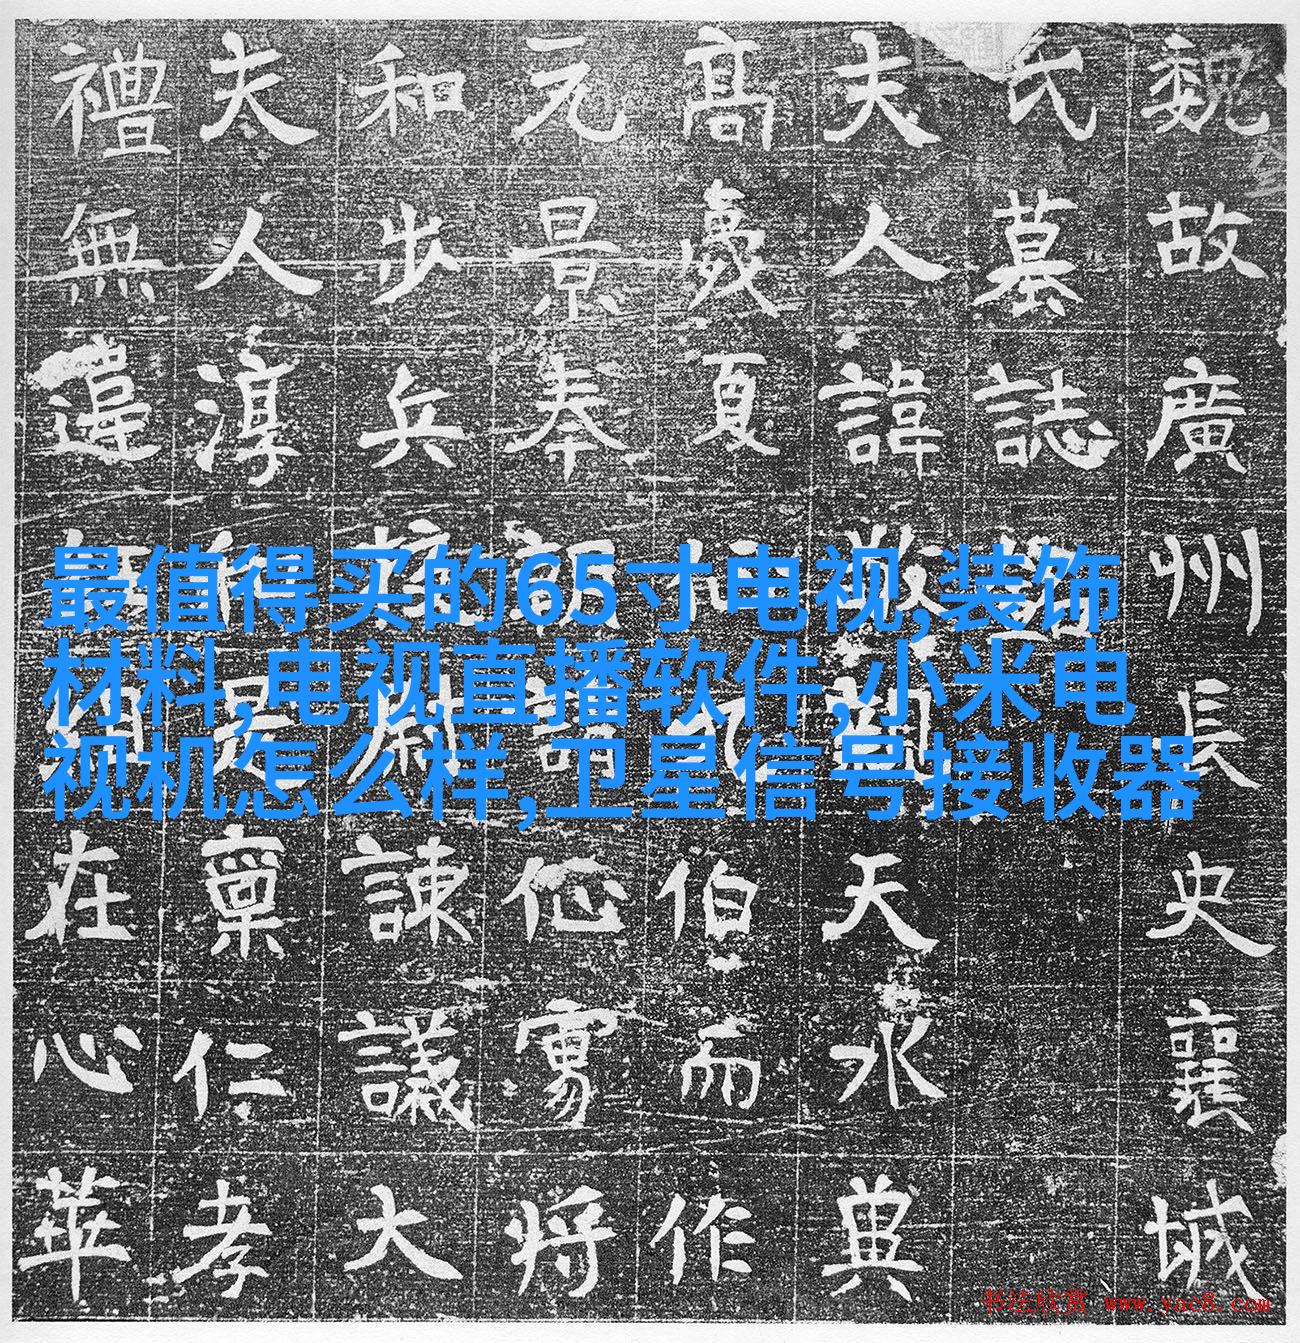 魏故廣州長史襄城
氏墓誌
夫人諱天水典
高夏伯而作
元景奉将
和步兵校尉諫議大
夫人淳是稟仁孝
禮無違在心華
最值得买的65寸电视,装饰
材料,电视直播软件,小米电
视机怎么样,卫星信号接收器
书法欣赏 www.yac8.com